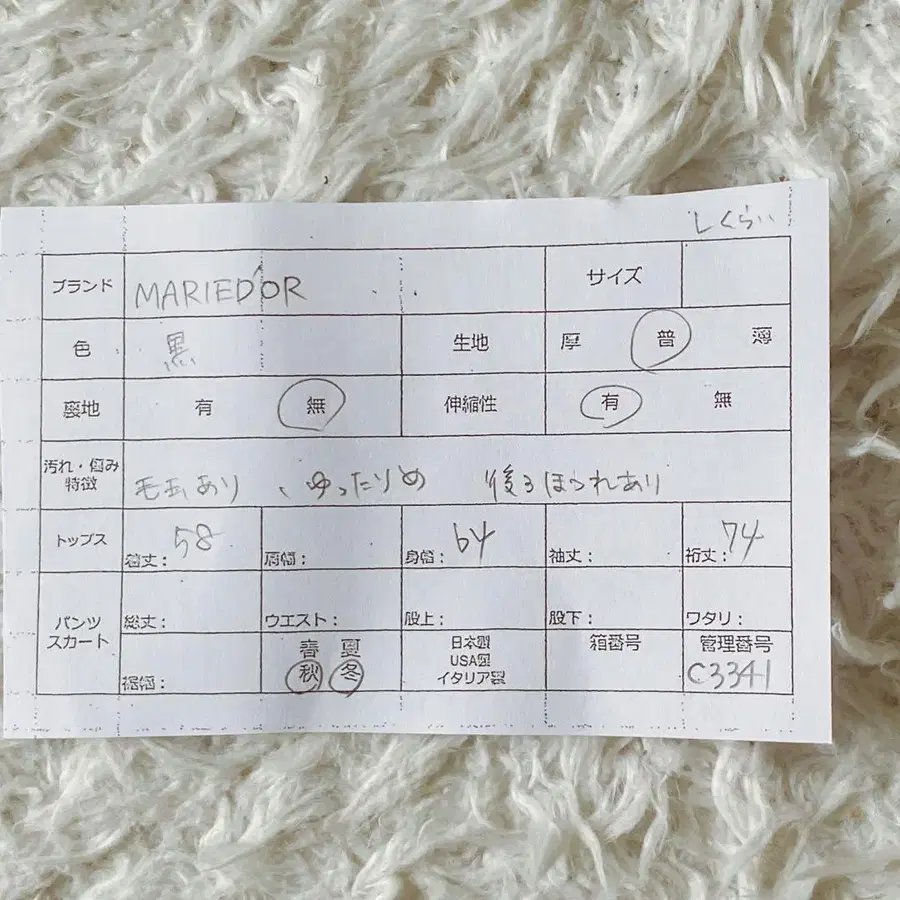 Lくらい
ブランド MARIED'OR サイズ
色 黒 生地 厚 普 薄
裏地 有 無 伸縮性 有 無
汚れ・傷み
特徴 毛玉あり 、ゆったりめ 後ろほつれあり
トップス 着丈: 58 肩幅: 身幅: 64 袖丈: 裄丈: 74
パンツ
スカート 総丈: ウエスト: 股上: 股下: ワタリ:
裾幅: 春 夏 秋 冬 日本製 USA製 イタリア製 箱番号 管理番号
C3341